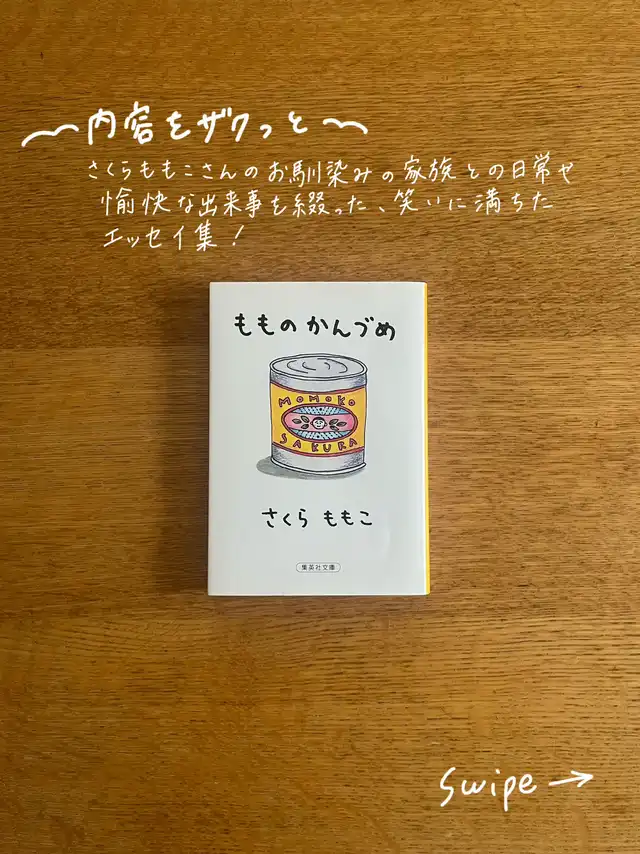 内容をザクっと
さくらももこさんのお馴染みの家族との日常や
愉快な出来事を綴った、笑いに満ちた
エッセイ集!
もものかんづめ
MOMOKO
SAKURA
さくらももこ
集英社文庫
Swipe →